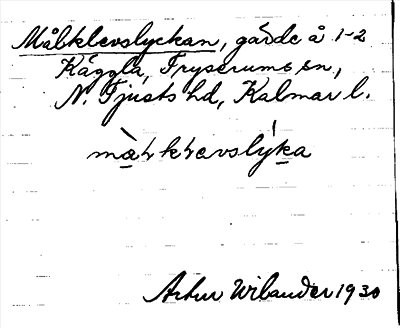 Målklevslyckan, gärde å 1-2
Käggla, Tryserums sn,
N. Tjusts hd, Kalmar l.
mæ̀ɫkɫevslýka
Artur Wilander 1930